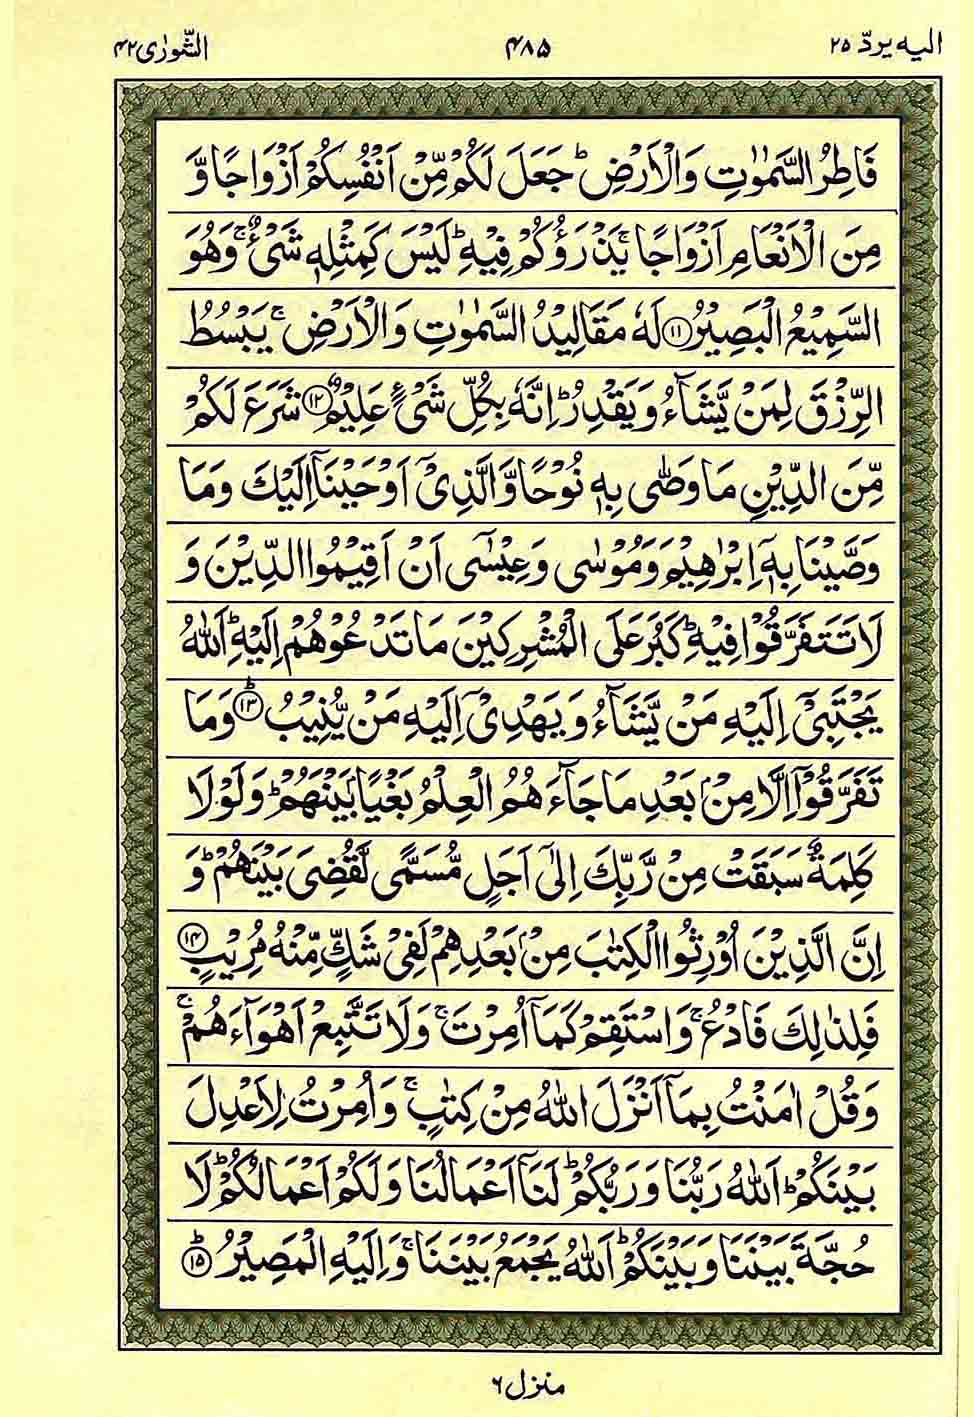 الیه یردّ ۲۵
۴۸۵
الشّورٰی ۴۲
فَاطِرُ السَّمٰوٰتِ وَالْاَرْضِ ؕ جَعَلَ لَكُمْ مِّنْ اَنْفُسِكُمْ اَزْوَاجًا وَّ
مِنَ الْاَنْعَامِ اَزْوَاجًا ۚ يَذْرَؤُكُمْ فِيْهِ ؕ لَيْسَ كَمِثْلِهٖ شَىْءٌ ۚ وَهُوَ
السَّمِيْعُ الْبَصِيْرُ ﴿۱۱﴾ لَهٗ مَقَالِيْدُ السَّمٰوٰتِ وَالْاَرْضِ ۚ يَبْسُطُ
الرِّزْقَ لِمَنْ يَّشَآءُ وَيَقْدِرُ ؕ اِنَّهٗ بِكُلِّ شَىْءٍ عَلِيْمٌ ﴿۱۲﴾ شَرَعَ لَكُمْ
مِّنَ الدِّيْنِ مَا وَصّٰى بِهٖ نُوْحًا وَّالَّذِىْۤ اَوْحَيْنَاۤ اِلَيْكَ وَمَا
وَصَّيْنَا بِهٖۤ اِبْرٰهِيْمَ وَمُوْسٰى وَعِيْسٰۤى اَنْ اَقِيْمُوا الدِّيْنَ وَ
لَا تَتَفَرَّقُوْا فِيْهِ ؕ كَبُرَ عَلَى الْمُشْرِكِيْنَ مَا تَدْعُوْهُمْ اِلَيْهِ ؕ اَللّٰهُ
يَجْتَبِىْۤ اِلَيْهِ مَنْ يَّشَآءُ وَيَهْدِىْۤ اِلَيْهِ مَنْ يُّنِيْبُ ؕ﴿۱۳﴾ وَمَا
تَفَرَّقُوْۤا اِلَّا مِنْۢ بَعْدِ مَا جَآءَهُمُ الْعِلْمُ بَغْيًاۢ بَيْنَهُمْ ؕ وَلَوْلَا
كَلِمَةٌ سَبَقَتْ مِنْ رَّبِّكَ اِلٰٓى اَجَلٍ مُّسَمًّى لَّقُضِىَ بَيْنَهُمْ ؕ وَ
اِنَّ الَّذِيْنَ اُوْرِثُوا الْكِتٰبَ مِنْۢ بَعْدِهِمْ لَفِىْ شَكٍّ مِّنْهُ مُرِيْبٍ ﴿۱۴﴾
فَلِذٰلِكَ فَادْعُ ۚ وَاسْتَقِمْ كَمَاۤ اُمِرْتَ ۚ وَلَا تَتَّبِعْ اَهْوَآءَهُمْ ۚ
وَقُلْ اٰمَنْتُ بِمَاۤ اَنْزَلَ اللّٰهُ مِنْ كِتٰبٍ ۚ وَاُمِرْتُ لِاَعْدِلَ
بَيْنَكُمْ ؕ اَللّٰهُ رَبُّنَا وَرَبُّكُمْ ؕ لَنَاۤ اَعْمَالُنَا وَلَكُمْ اَعْمَالُكُمْ ؕ لَا
حُجَّةَ بَيْنَنَا وَبَيْنَكُمْ ؕ اَللّٰهُ يَجْمَعُ بَيْنَنَا ۚ وَاِلَيْهِ الْمَصِيْرُ ؕ﴿۱۵﴾
منزل ۶